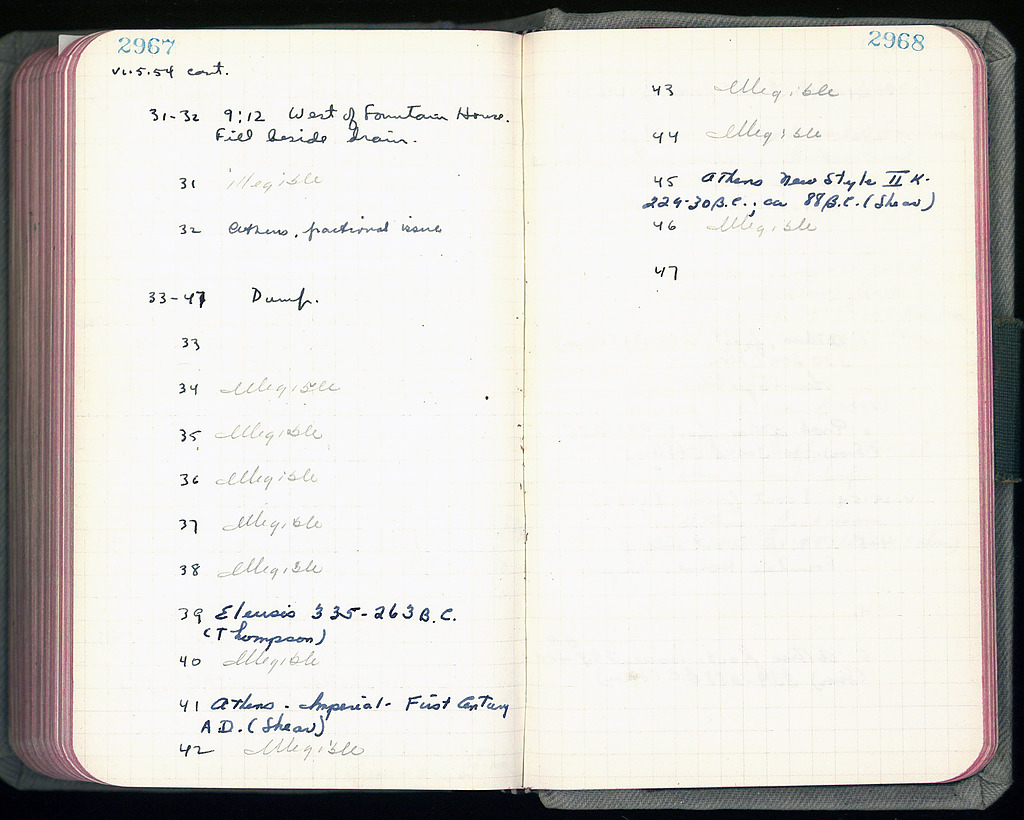 2967
vi.5.54 cont.
31-32 9:12 West of Fountain House.
Fill beside drain.
31 illegible
32 Athens, fractional issue
33-47 Dump.
33
34 Illegible
35 Illegible
36 Illegible
37 Illegible
38 Illegible
39 Eleusis 335-263 B.C.
(Thompson)
40 Illegible
41 Athens - Imperial - First Century
A.D. (Shear)
42 Illegible
2968
43 Illegible
44 Illegible
45 Athens New Style II K.
229-30 B.C.; ca 88 B.C. (Shear)
46 Illegible
47